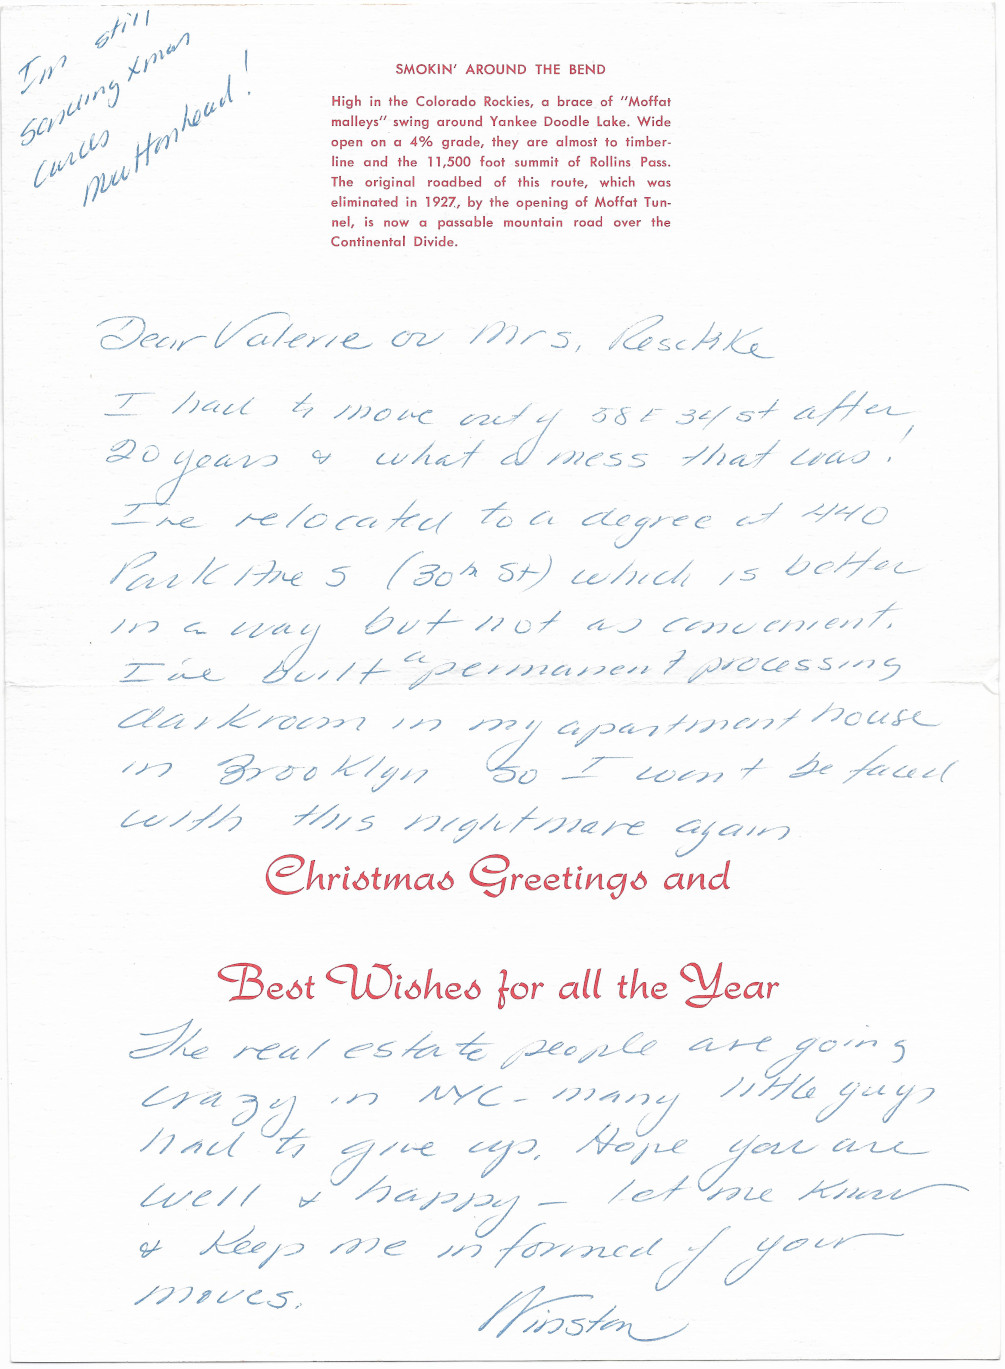 I'm still
sending Xmas
cards
Muttonhead!
SMOKIN' AROUND THE BEND
High in the Colorado Rockies, a brace of "Moffat
malleys" swing around Yankee Doodle Lake. Wide
open on a 4% grade, they are almost to timber-
line and the 11,500 foot summit of Rollins Pass.
The original roadbed of this route, which was
eliminated in 1927, by the opening of Moffat Tun-
nel, is now a passable mountain road over the
Continental Divide.
Dear Valerie or Mrs. Reschke
I had to move out of 38 E 34 St after
20 years & what a mess that was!
I've relocated to a degree at 440
Park Ave S (30th St) which is better
in a way but not as convenient.
I've built a permanent processing
darkroom in my apartment house
in Brooklyn so I won't be faced
with this nightmare again
Christmas Greetings and
Best Wishes for all the Year
The real estate people are going
crazy in NYC - many little guys
had to give up. Hope you are
well & happy - let me know
& keep me informed of your
moves.
Winston